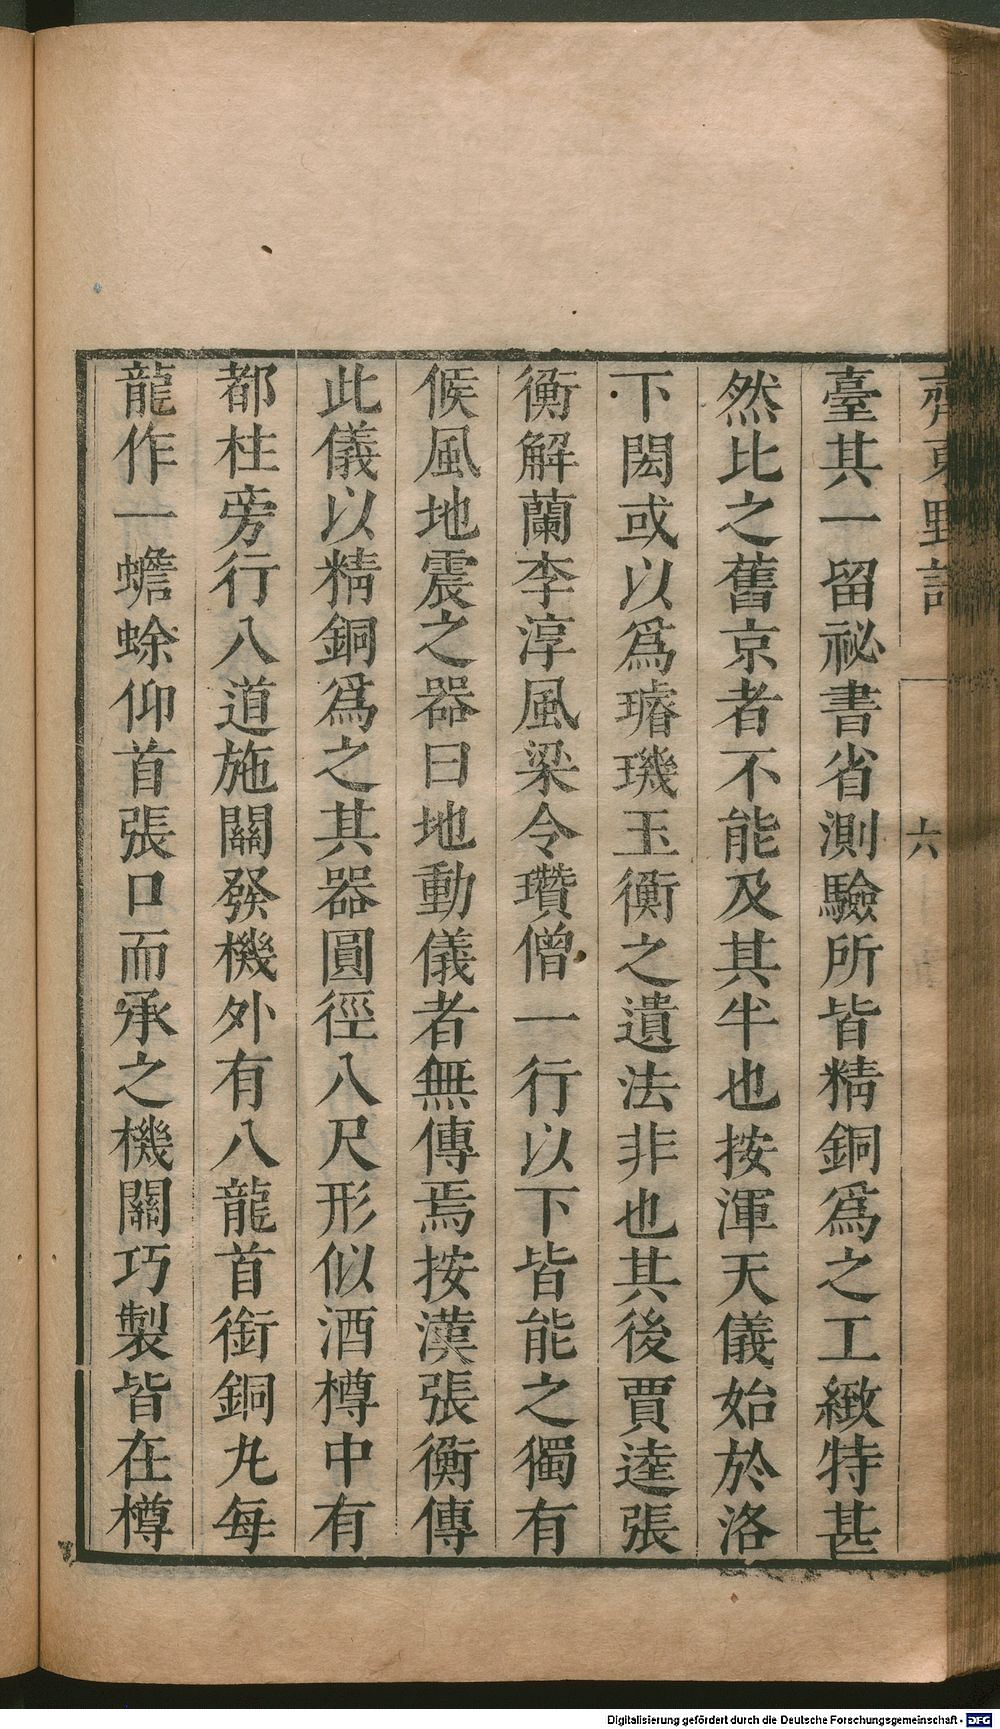 齊東野語
六
臺其一留祕書省測驗所皆精銅爲之工緻特甚
然比之舊京者不能及其半也按渾天儀始於洛
下閎或以爲璿璣玉衡之遺法非也其後賈逵張
衡解蘭李淳風梁令瓚僧一行以下皆能之獨有
候風地震之器曰地動儀者無傳焉按漢張衡傳
此儀以精銅爲之其器圓徑八尺形似酒樽中有
都柱旁行八道施關發機外有八龍首銜銅丸每
龍作一蟾蜍仰首張口而承之機關巧製皆在樽
Digitalisierung gefördert durch die Deutsche Forschungsgemeinschaft - DFG